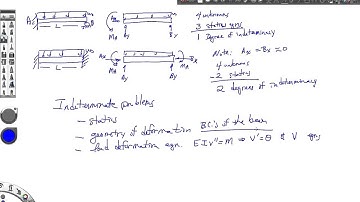 4 unknowns
3 statics eqns
1 Degree of indeterminacy
Note: Ax = Bx = 0
4 unknowns
- 2 statics
2 degrees of indeterminacy
A
L
MA
Ay
By
L
MA
Ay
By
Bx
Indeterminate problems
- statics
- geometry of deformation BC's of the beam
- load deformation eqn. EIv" = M ⇒ v' = θ & v eqns